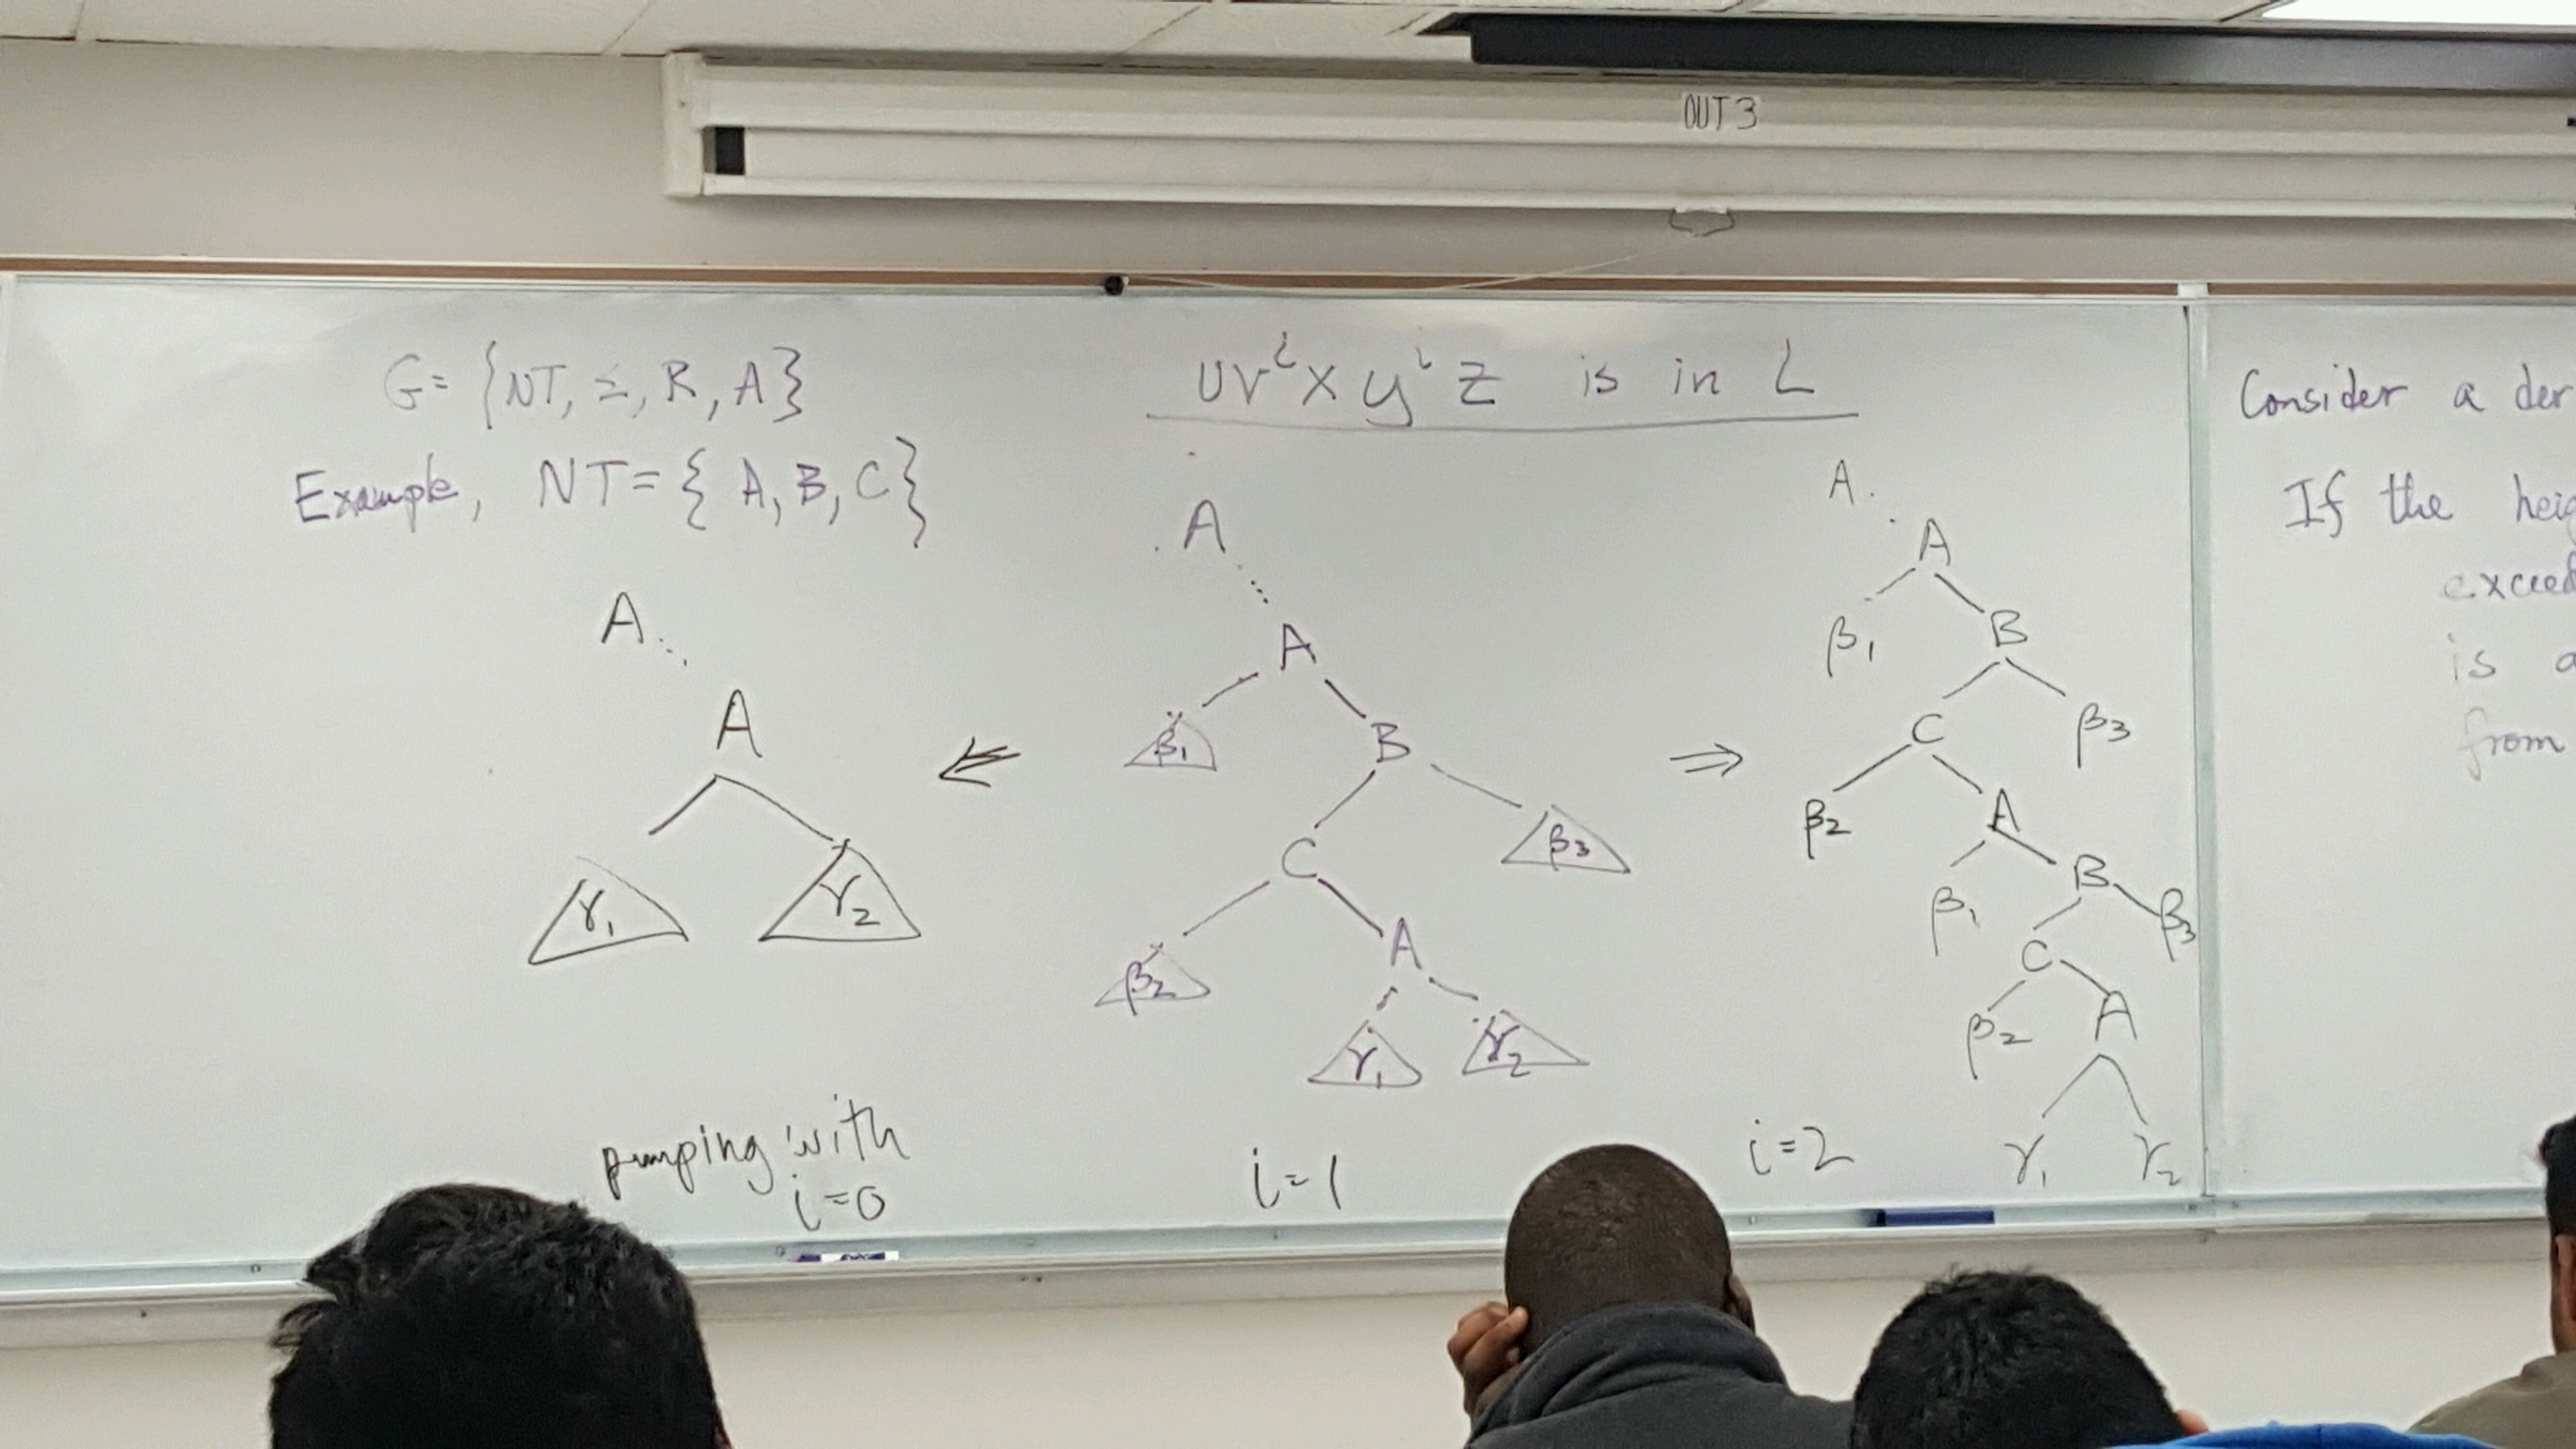 OUT 3
G = {NT, Σ, R, A}
Example, NT = { A, B, C }
A
A
γ₁ γ₂
pumping with
i=0
uvⁱxyⁱz is in L
A
A
β₁ B
C β₃
β₂ A
γ₁ γ₂
i=1
A
A
β₁ B
C β₃
β₂ A
β₁ B
C β₃
β₂ A
γ₁ γ₂
i=2
Consider a
If the
is
from